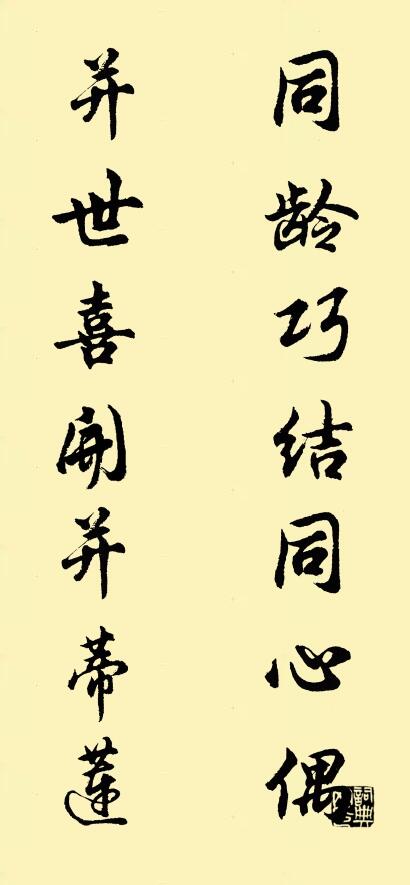 同龄巧结同心偶
并世喜開并蒂蓮